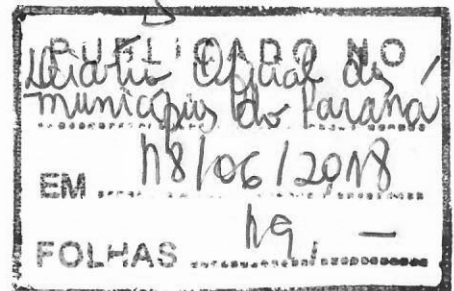 PUBLICADO NO
Diário Oficial dos
municípios do Paraná
EM 18/06/2018
FOLHAS 19, —